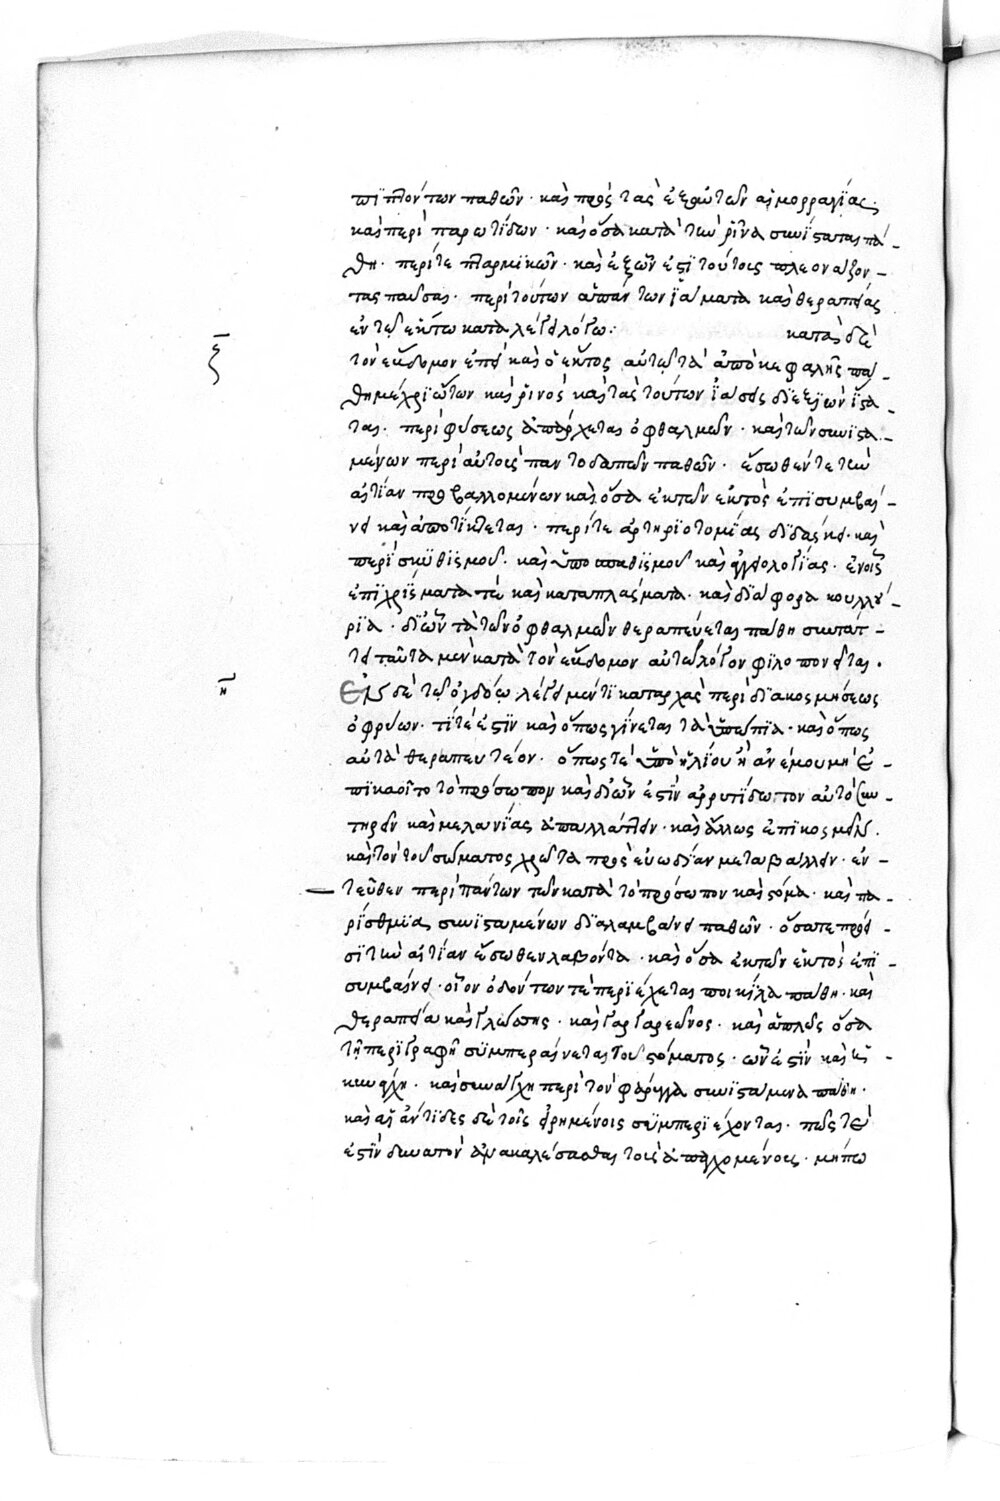 πιπτόντων παθῶν · καὶ πρὸς τὰς ἐξ ὤτων αἱμορραγίας ·
καὶ περὶ παρωτίδων · καὶ ὅσα κατὰ τὴν ῥῖνα συνίσταται πά-
θη · περί τε πταρμικῶν · καὶ ἐξ ὧν ἐπὶ τούτοις πλεονάζον-
τας παῦσαι · περὶ τούτων ἁπάντων ἰάματα καὶ θεραπείας
ἐν τῷ ἕκτῳ καταλέγει λόγῳ : κατὰ δὲ
ζ
τὸν ἕβδομον ἐπεὶ καὶ ὁ ἕκτος αὐτῷ τὰ ἀπὸ κεφαλῆς πά-
θη μέχρι ὤτων καὶ ῥινὸς καὶ τὰς τούτων ἰάσεις διεξιὼν ἵστα
ται · περὶ φύσεως ἀπάρχεται ὀφθαλμῶν · καὶ τῶν συνιστα-
μένων περὶ αὐτοὺς παντοδαπῶν παθῶν · ἔσωθέν τε τὴν
αἰτίαν προβαλλομένων καὶ ὅσα ἐκ τῶν ἐκτὸς ἐπισυμβαί-
νει καὶ ἀποτίκτεται · περί τε ἀρτηριοτομίας διδάσκει · καὶ
περὶ σκυθισμοῦ · καὶ ὑποσπαθισμοῦ καὶ ἀγγειολογίας · ἐν οἷς
ἐπιχρίσματά τε καὶ καταπλάσματα · καὶ διάφορα κουλλύ-
ρια · δι' ὧν τὰ τῶν ὀφθαλμῶν θεραπεύεται πάθη συνάπτ-
ει ταῦτα μὲν κατὰ τὸν ἕβδομον αὐτῷ λόγον φιλοπονεῖται ·
η
Ἐν δὲ τῷ ὀγδόῳ λέγει μέν τι καταρχὰς περὶ διακοσμήσεως
ὀφρύων · τί τέ ἐστιν καὶ ὅπως γίνεται τὰ ὑπώπια · καὶ ὅπως
αὐτὰ θεραπευτέον · ὅπως τε ὑπὸ ἡλίου ἢ ἀνέμου μὴ ἐ-
πικαοῖτο τὸ πρόσωπον καὶ δι' ὧν ἐστὶν ἀρρυτίδωτον αὐτὸ συν-
τηρεῖν καὶ μελανίας ἀπαλλάττειν · καὶ ἄλλως ἐπικοσμεῖν ·
καὶ τὸν τοῦ σώματος χρῶτα πρὸς εὐωδίαν μεταβάλλειν · ἐν-
τεῦθεν περὶ πάντων τῶν κατὰ τὸ πρόσωπον καὶ στόμα · καὶ πα
ρίσθμια συνισταμένων διαλαμβάνει παθῶν · ὅσα τε πρόει-
σι τὴν αἰτίαν ἔσωθεν λαβόντα · καὶ ὅσα ἐκ τῶν ἐκτὸς ἐπι-
συμβαίνει · οἷον ὀδόντων τε περιέχεται ποικίλα πάθη · καὶ
θεραπεία καὶ γλώσσης · καὶ γαργαρεῶνος · καὶ ἁπλῶς ὅσα
τῇ περιγραφῇ συμπεραίνεται τοῦ στόματος · ὧν ἐστὶν καὶ ἡ -
κυνάγχη · καὶ συνάγχη περὶ τὸν φάρυγγα συνιστάμενα πάθη ·
καὶ αἱ ἀντιάδες δὲ τοῖς εἰρημένοις συμπεριέχονται · πῶς τέ
ἐστιν δυνατὸν ἀνακαλέσασθαι τοὺς ἀπαγχομένους · μήπω